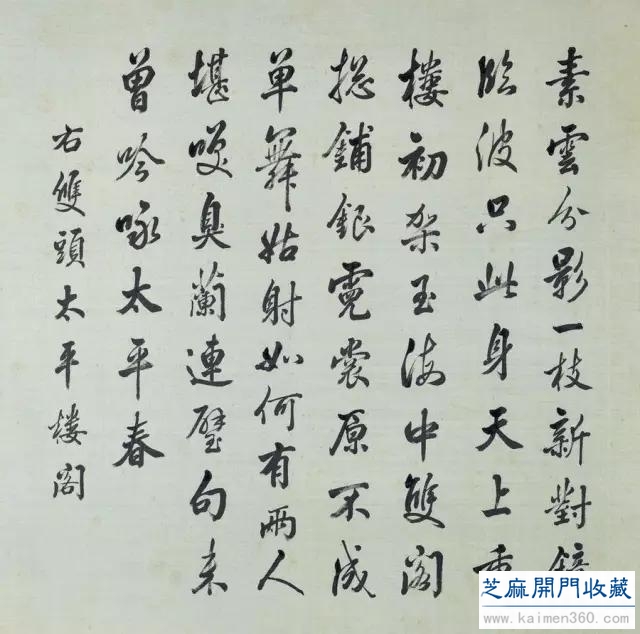 素雲分影一枝新對鏡
臨波只此身天上重
樓初架玉海中雙閣
摠鋪銀霓裳原不成
單舞姑射如何有兩人
堪咲臭蘭連璧句未
曾吟咏太平春
右雙頭太平樓閣
芝麻開門收藏
www.kaimen360.com